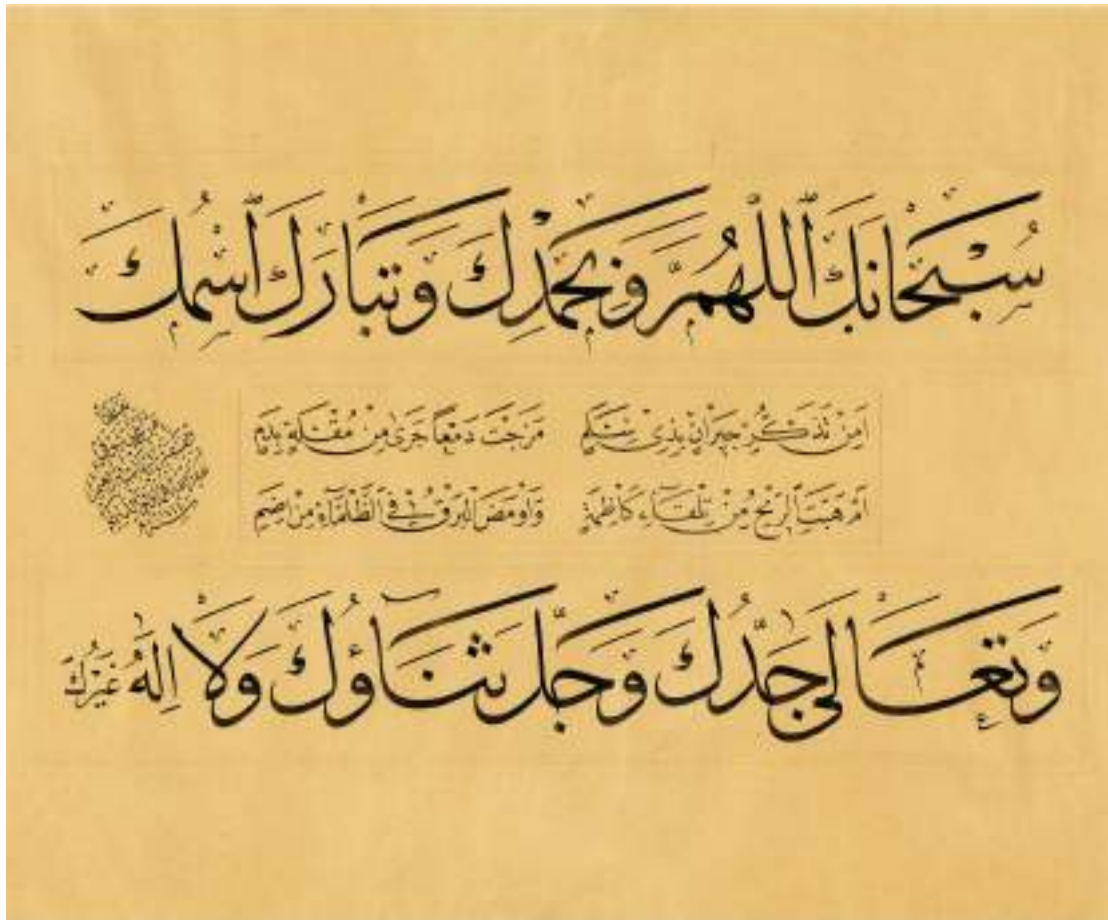 سُبْحَانَكَ ٱللّٰهُمَّ وَبِحَمْدِكَ وَتَبَارَكَ ٱسْمُكَ
اَمِنْ تَذَكُّرِ جِيرَانٍ بِذِى سَلَمٍ مَزَجْتَ دَمْعًا جَرٰى مِنْ مُقْلَةٍ بِدَمٍ
اَمْ هَبَّتِ ٱلرِّيحُ مِنْ تِلْقَآءِ كَاظِمَةٍ وَاَوْمَضَ ٱلْبَرْقُ فِى ٱلظَّلْمَآءِ مِنْ اِضَمِ
وَتَعَالٰى جَدُّكَ وَجَلَّ ثَنَآؤُكَ وَلَآ اِلٰهَ غَيْرُكَ